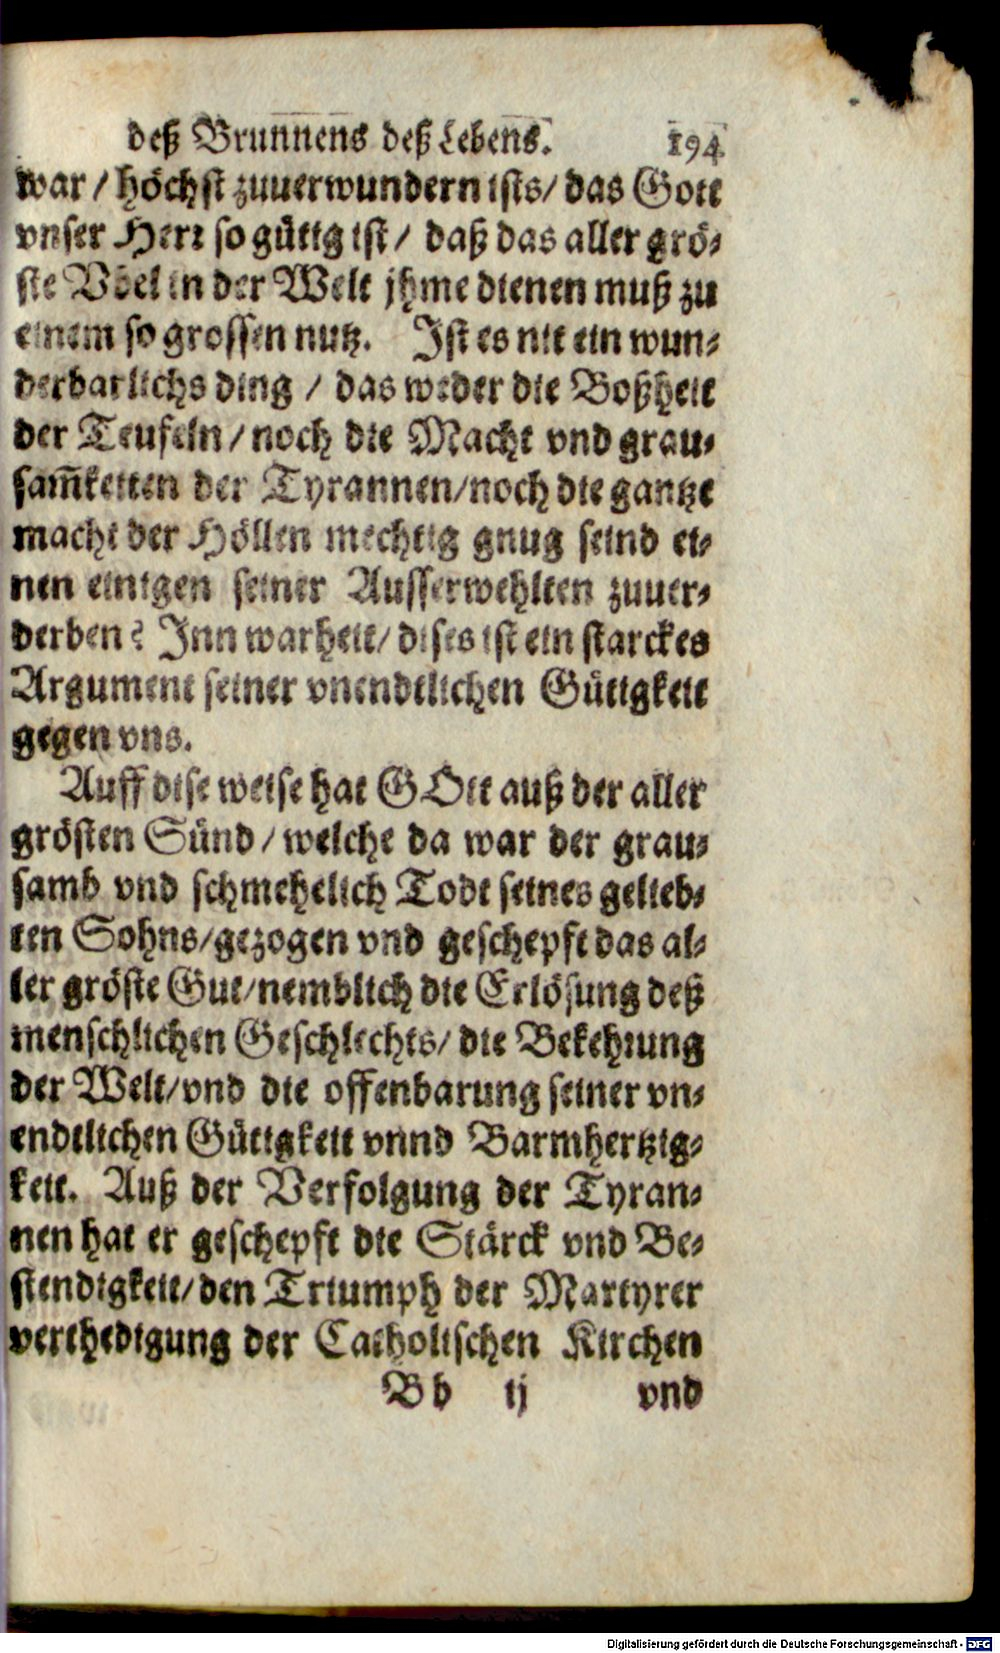 deß Brunnens deß Lebens. 194
war / höchst zuuerwundern ists / das Gott
vnser Herr so gütig ist / daß das aller grö-
ste Vbel in der Welt jhme dienen muß zu
einem so grossen nutz. Ist es nit ein wun-
derbarlichs ding / das weder die Boßheit
der Teufeln / noch die Macht vnd grau-
sam̃keiten der Tyrannen / noch die gantze
macht der Höllen mechtig gnug seind ei-
nen einigen seiner Ausserwehlten zuuer-
derben? Inn warheit / dises ist ein starckes
Argument seiner vnendtlichen Gütigkeit
gegen vns.
Auff dise weise hat GOtt auß der aller
grösten Sünd / welche da war der grau-
samb vnd schmehelich Todt seines gelieb-
ten Sohns / gezogen vnd geschepft das al-
ler gröste Gut / nemblich die Erlösung deß
menschlichen Geschlechts / die Bekehrung
der Welt / vnd die offenbarung seiner vn-
endtlichen Gütigkeit vnnd Barmhertzig-
keit. Auß der Verfolgung der Tyran-
nen hat er geschepft die Stärck vnd Be-
stendigkeit / den Triumph der Martyrer
verthedigung der Catholischen Kirchen
Bb ij vnd
Digitalisierung gefördert durch die Deutsche Forschungsgemeinschaft - DFG